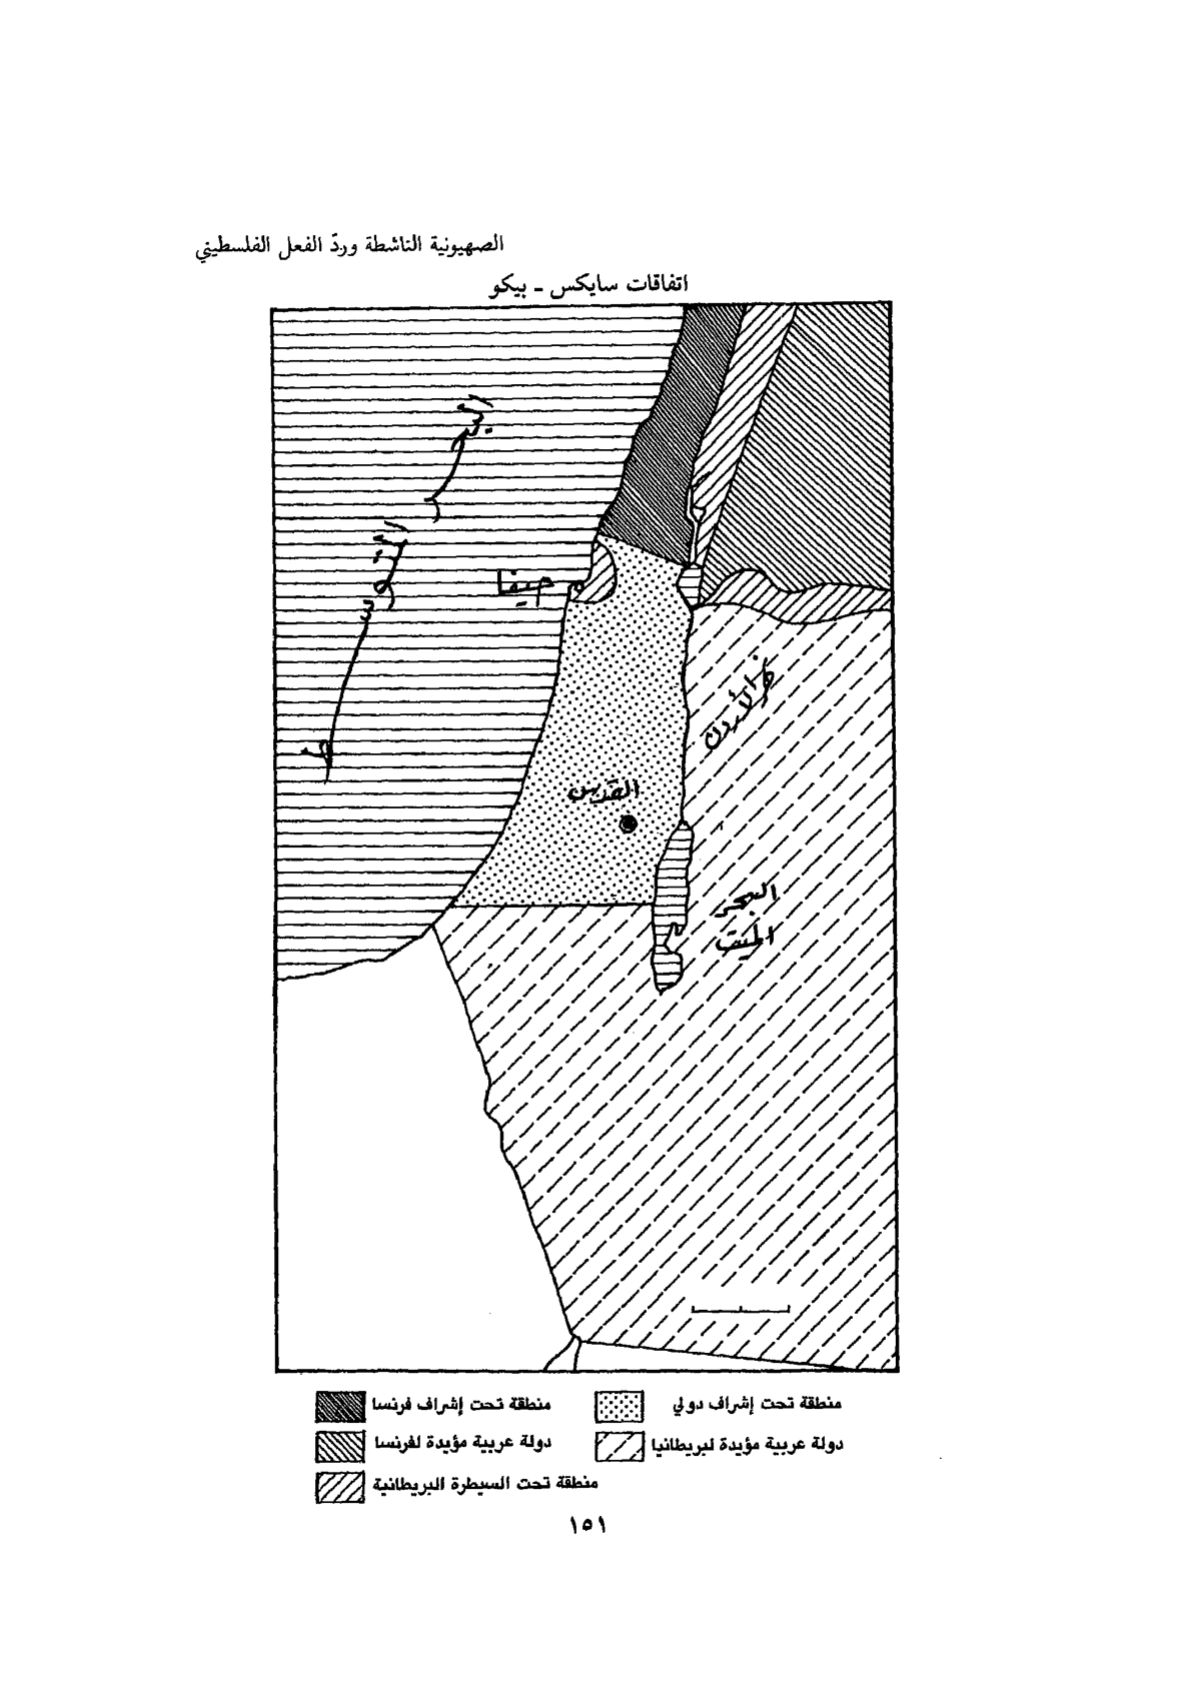 الصهيونية الناشطة وردّ الفعل الفلسطيني
اتفاقات سايكس ــ بيكو
البحر المتوسط
حيفا
نهر الأردن
القدس
البحر
الميت
منطقة تحت إشراف دولي
منطقة تحت إشراف فرنسا
دولة عربية مؤيدة لبريطانيا
دولة عربية مؤيدة لفرنسا
منطقة تحت السيطرة البريطانية
١٥١